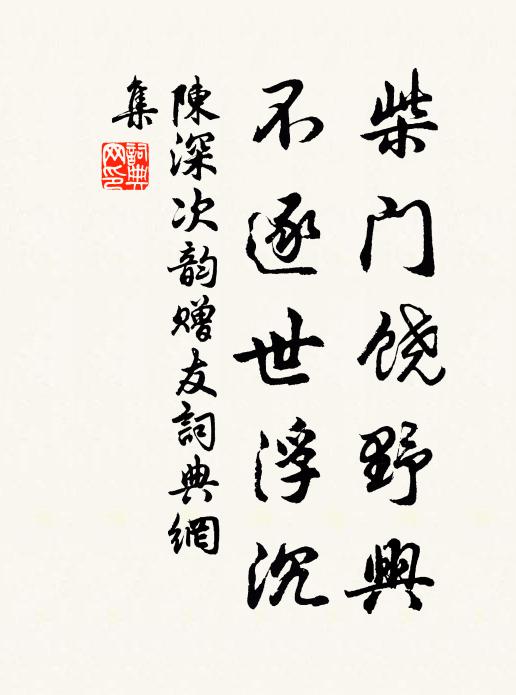 柴门饶野興
不逐世浮沉
陳深次韵赠友詞典網
集
詞典
网印